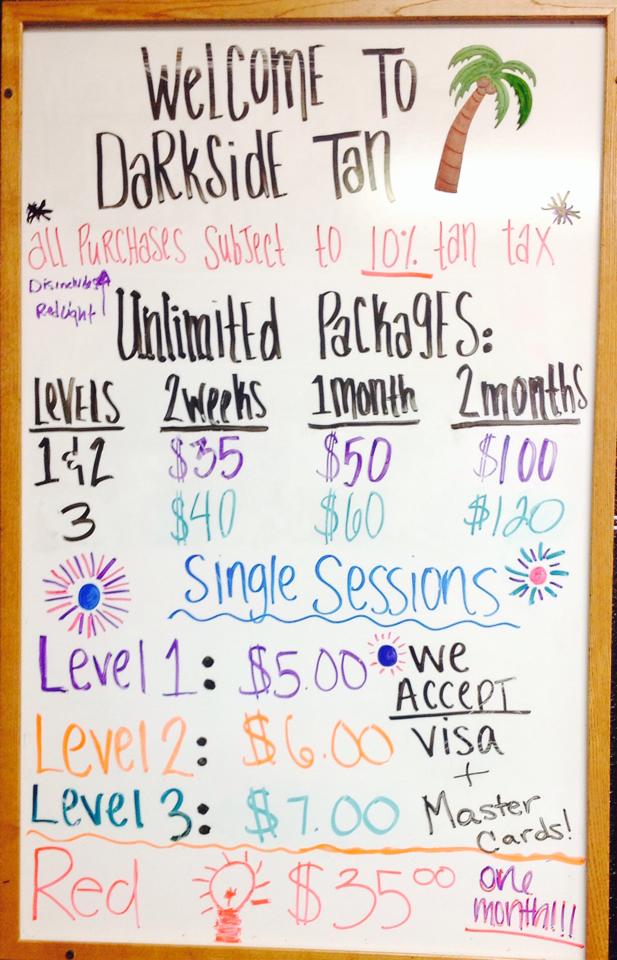 WELCOME TO
DARKSIDE TAN
all PURCHASES SUBJECT to 10% tan tax
Disincludes
Red Light
UNLIMITED PACKAGES:
LEVELS 2 weeks 1 month 2 months
1 & 2 $35 $50 $100
3 $40 $60 $120
Single Sessions
Level 1: $5.00
Level 2: $6.00
Level 3: $7.00
we
ACCEPT
visa
+
Master
Cards!
Red $35.00 one
month!!!